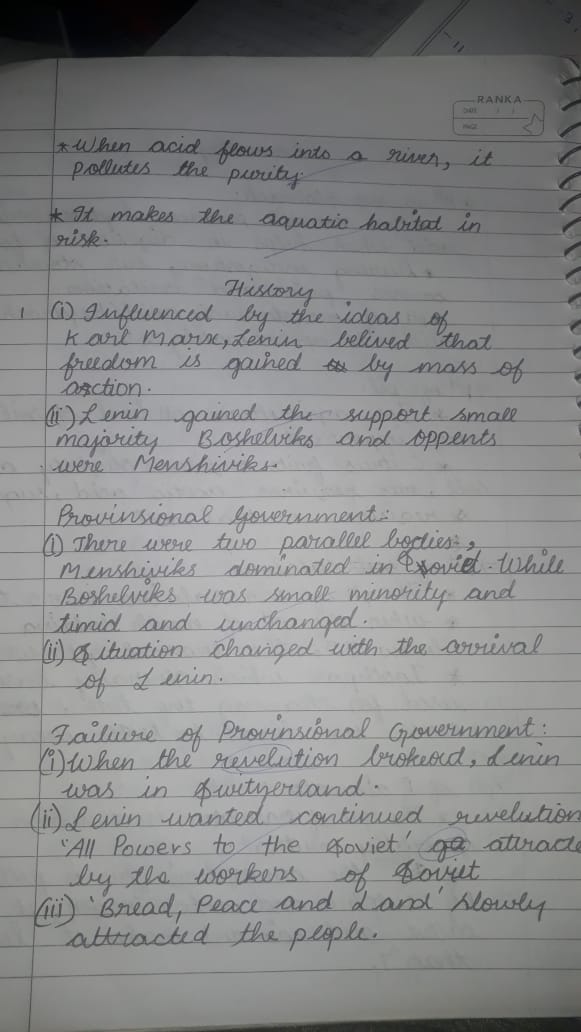 RANKA
DATE / /
PAGE
* When acid flows into a river, it
pollutes the purity.
* It makes the aquatic habitat in
risk.
History
1 (i) Influenced by the ideas of
Karl Marx, Lenin belived that
freedom is gained by mass of
action.
(ii) Lenin gained the support small
majority Boshelviks and oppents
were Menshiviks.
Provinsional Government:-
(i) There were two parallel bodies-,
Menshiviks dominated in Soviet. While
Boshelviks was small minority and
timid and unchanged.
(ii) Situation changed with the arrival
of Lenin.
Failiure of Provinsional Government:
(i) When the revelution brokeod, Lenin
was in Switzerland.
(ii) Lenin wanted continued revelution
'All Powers to the Soviet' attracte
by the workers of Soviet
(iii) 'Bread, Peace and Land' slowly
attracted the people.